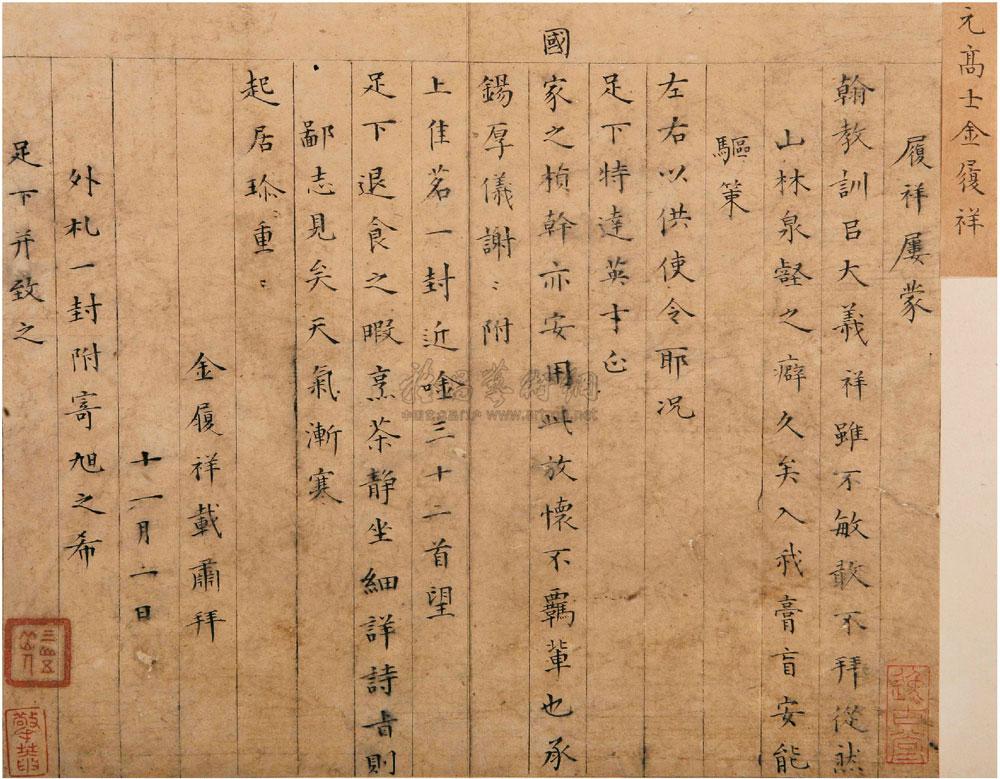 元髙士金履祥
履祥屢蒙
翰教訓㠯大義祥雖不敏敢不拜從然
山林泉壑之癖久矣入我膏肓安能
驅策
左右以供使令耶况
足下特達英才正
國家之楨幹亦安用此放懷不羈輩也承
錫厚儀謝〻附
上佳茗一封近唫三十二首望
足下退食之暇烹茶靜坐細詳詩旨則
鄙志見矣天氣漸寒
起居珍〻重〻
金履祥載肅拜
十一月二日
外札一封附寄旭之希
足下并致之
www.artfoxlive.net